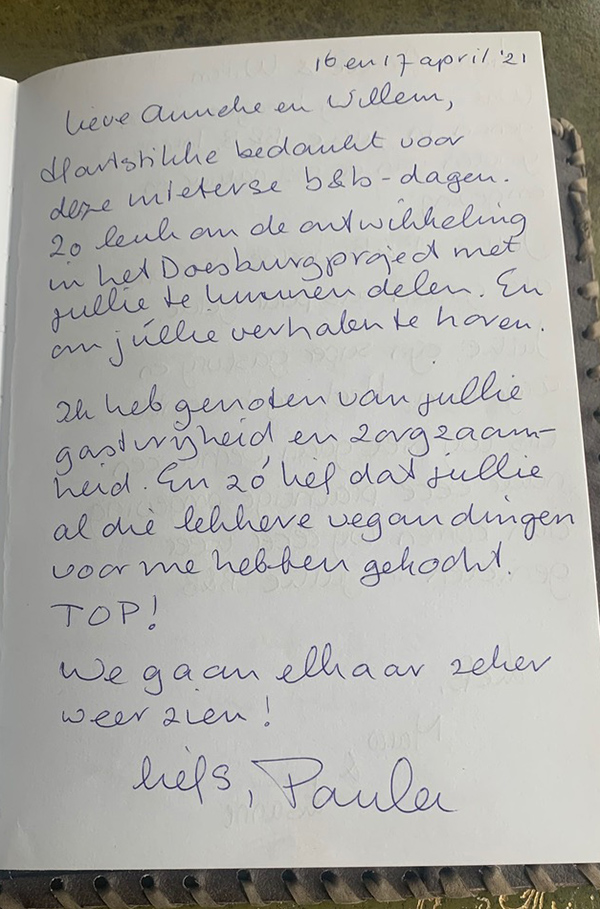 16 en 17 april '21
Lieve Anneke en Willem,
Hartstikke bedankt voor
deze nieterse b&b-dagen.
Zo leuk om de ontwikkeling
in het Doesburgproject met
jullie te kunnen delen. En
om júllie verhalen te horen.
Ik heb genoten van jullie
gastvrijheid en zorgzaam-
heid. En zó lief dat jullie
al die lekkere vegan dingen
voor me hebben gekocht.
TOP!
We gaan elkaar zeker
weer zien!
liefs, Paula